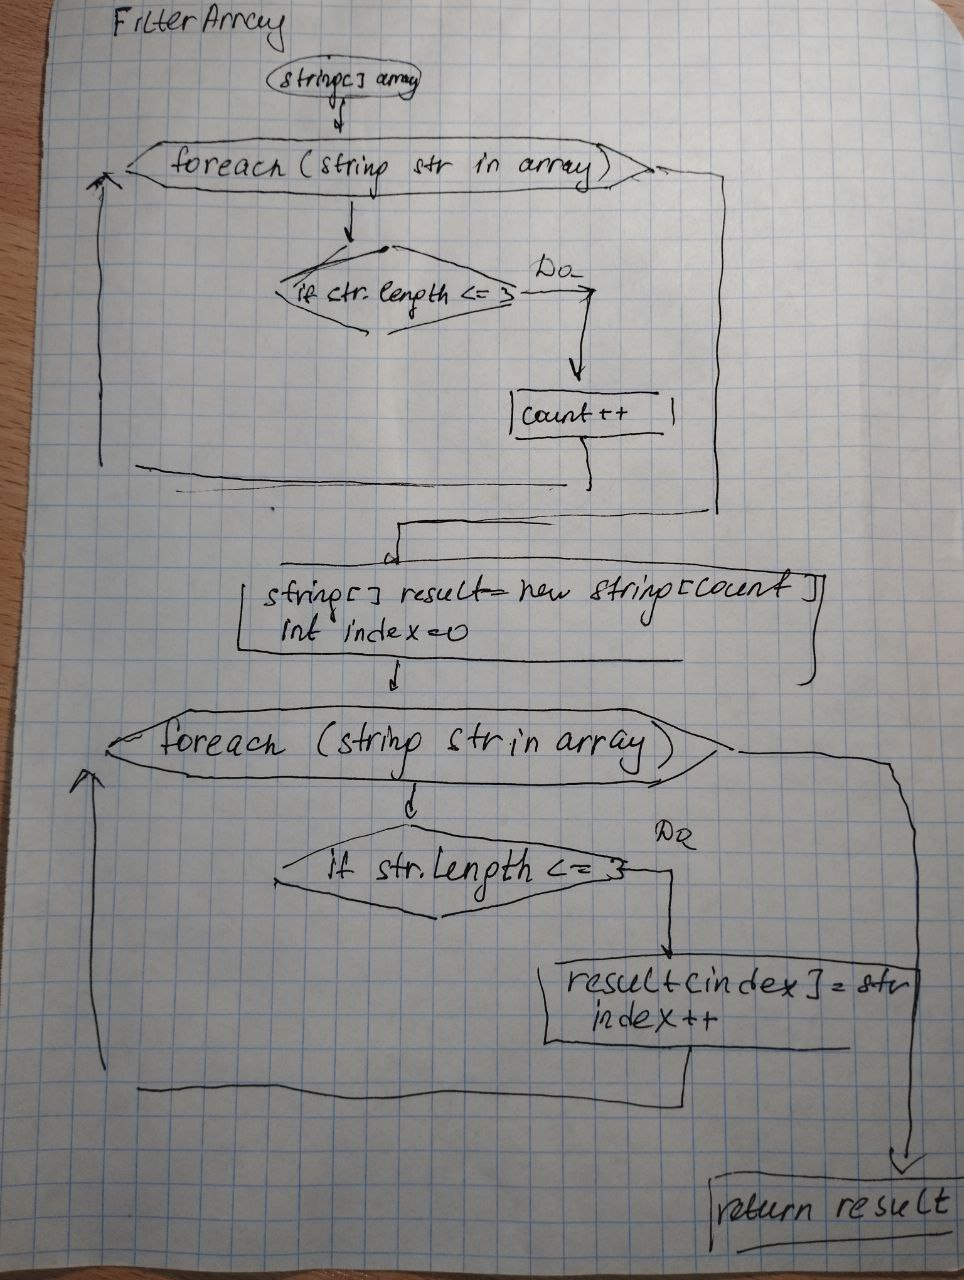 FilterArray
string[] array
foreach (string str in array)
if str.length <= 3
Da
count++
string[] result = new string[count]
int index = 0
foreach (string str in array)
if str.length <= 3
Da
result[index] = str
index++
return result